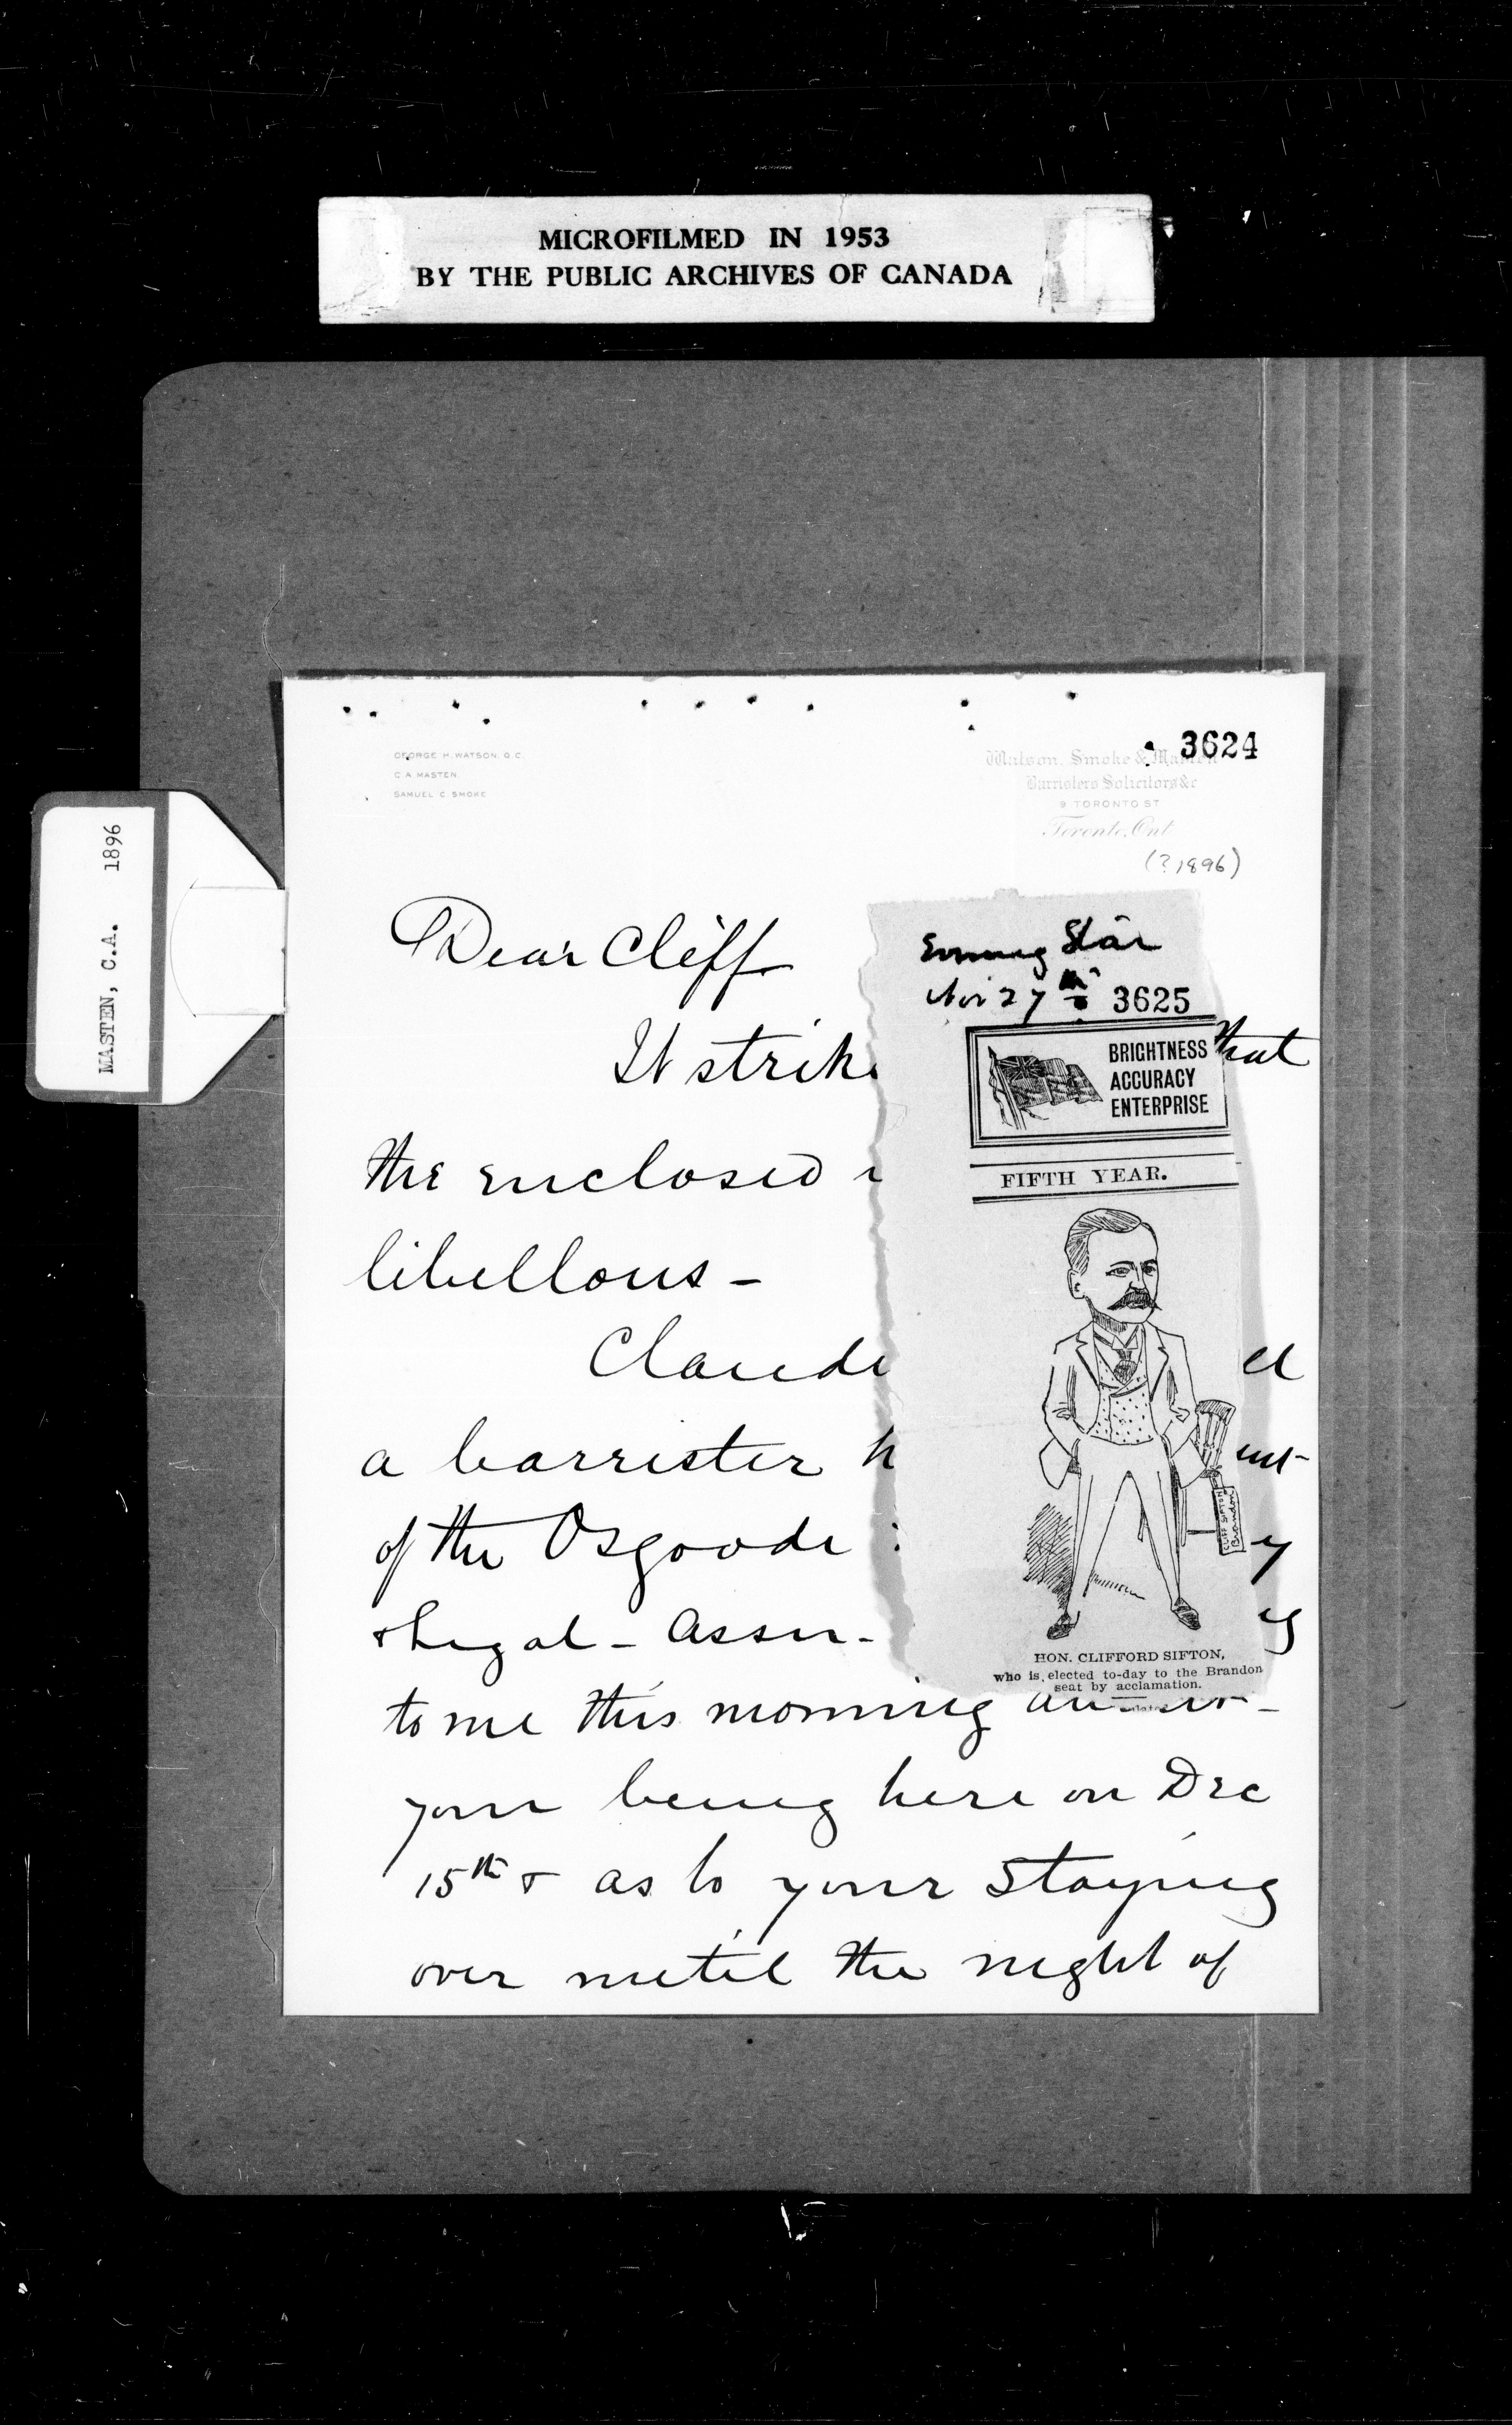 MICROFILMED IN 1953
BY THE PUBLIC ARCHIVES OF CANADA
MASTEN, C.A. 1896
3624
GEORGE H. WATSON, Q.C.
C. A. MASTEN.
SAMUEL C. SMOKE
Watson, Smoke & Masten
Barristers Solicitors &c
9 TORONTO ST
Toronto, Ont
(? 1896)
Dear Cliff
It strik
that
the enclosed
libellous -
Claude
a barrister h
of the Osgoode
y
& Legal - Assn -
to me this morning
your being here on Dec
15th & as to your staying
over until the night of
Evening Star
Nov 27th 3625
BRIGHTNESS
ACCURACY
ENTERPRISE
FIFTH YEAR.
CLIFF SIFTON
Brandon
HON. CLIFFORD SIFTON,
who is elected to-day to the Brandon
seat by acclamation.